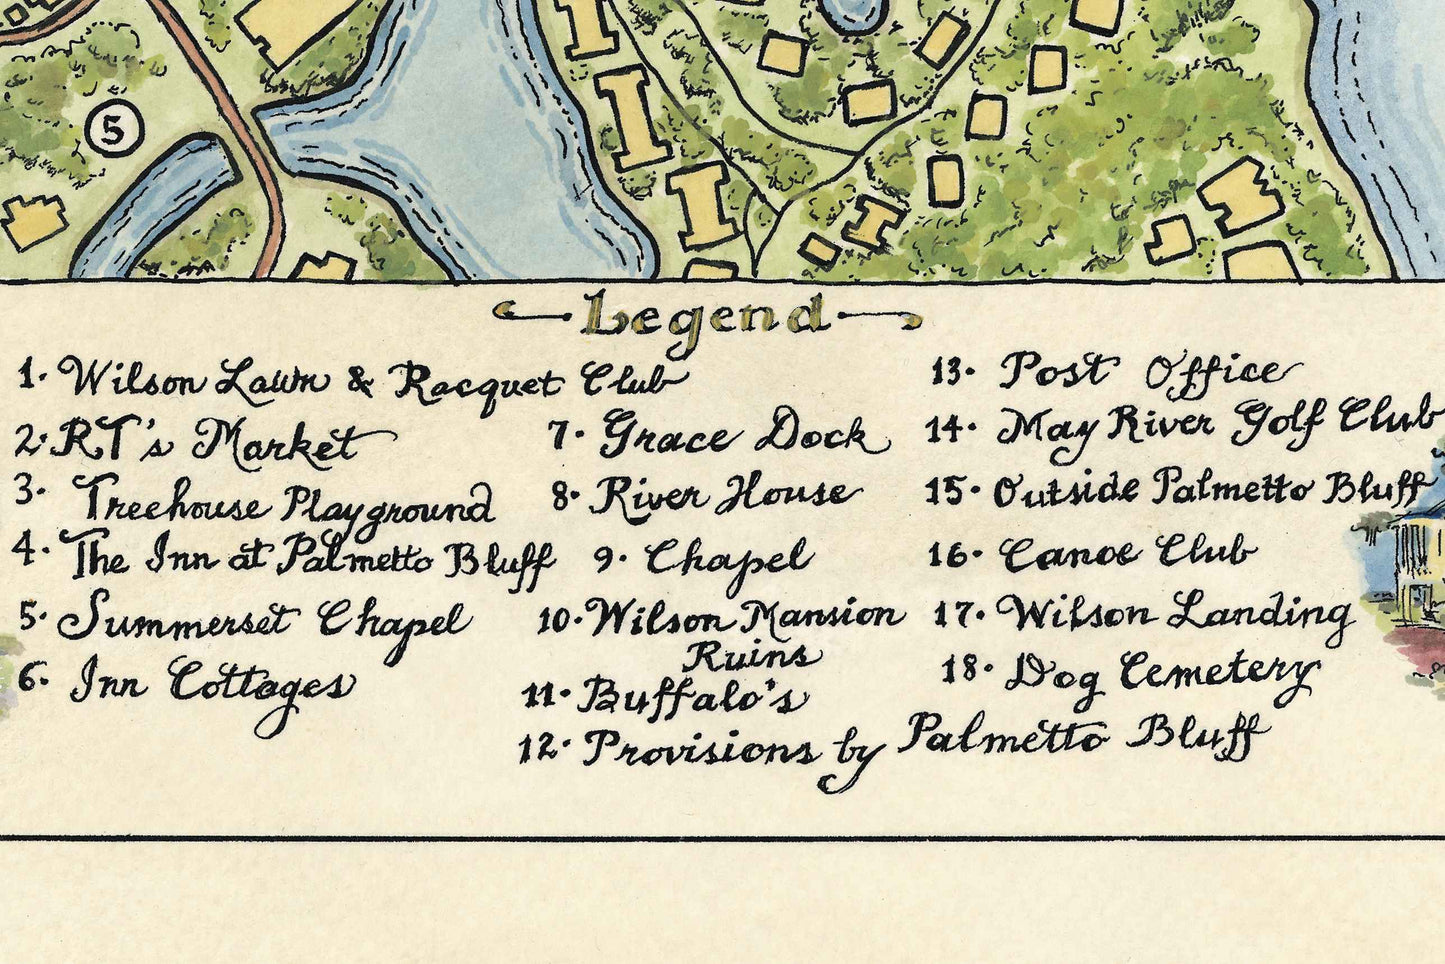 5
Legend
1. Wilson Lawn & Racquet Club
2. RT's Market
3. Treehouse Playground
4. The Inn at Palmetto Bluff
5. Summerset Chapel
6. Inn Cottages
7. Grace Dock
8. River House
9. Chapel
10. Wilson Mansion
Ruins
11. Buffalo's
12. Provisions by Palmetto Bluff
13. Post Office
14. May River Golf Club
15. Outside Palmetto Bluff
16. Canoe Club
17. Wilson Landing
18. Dog Cemetery